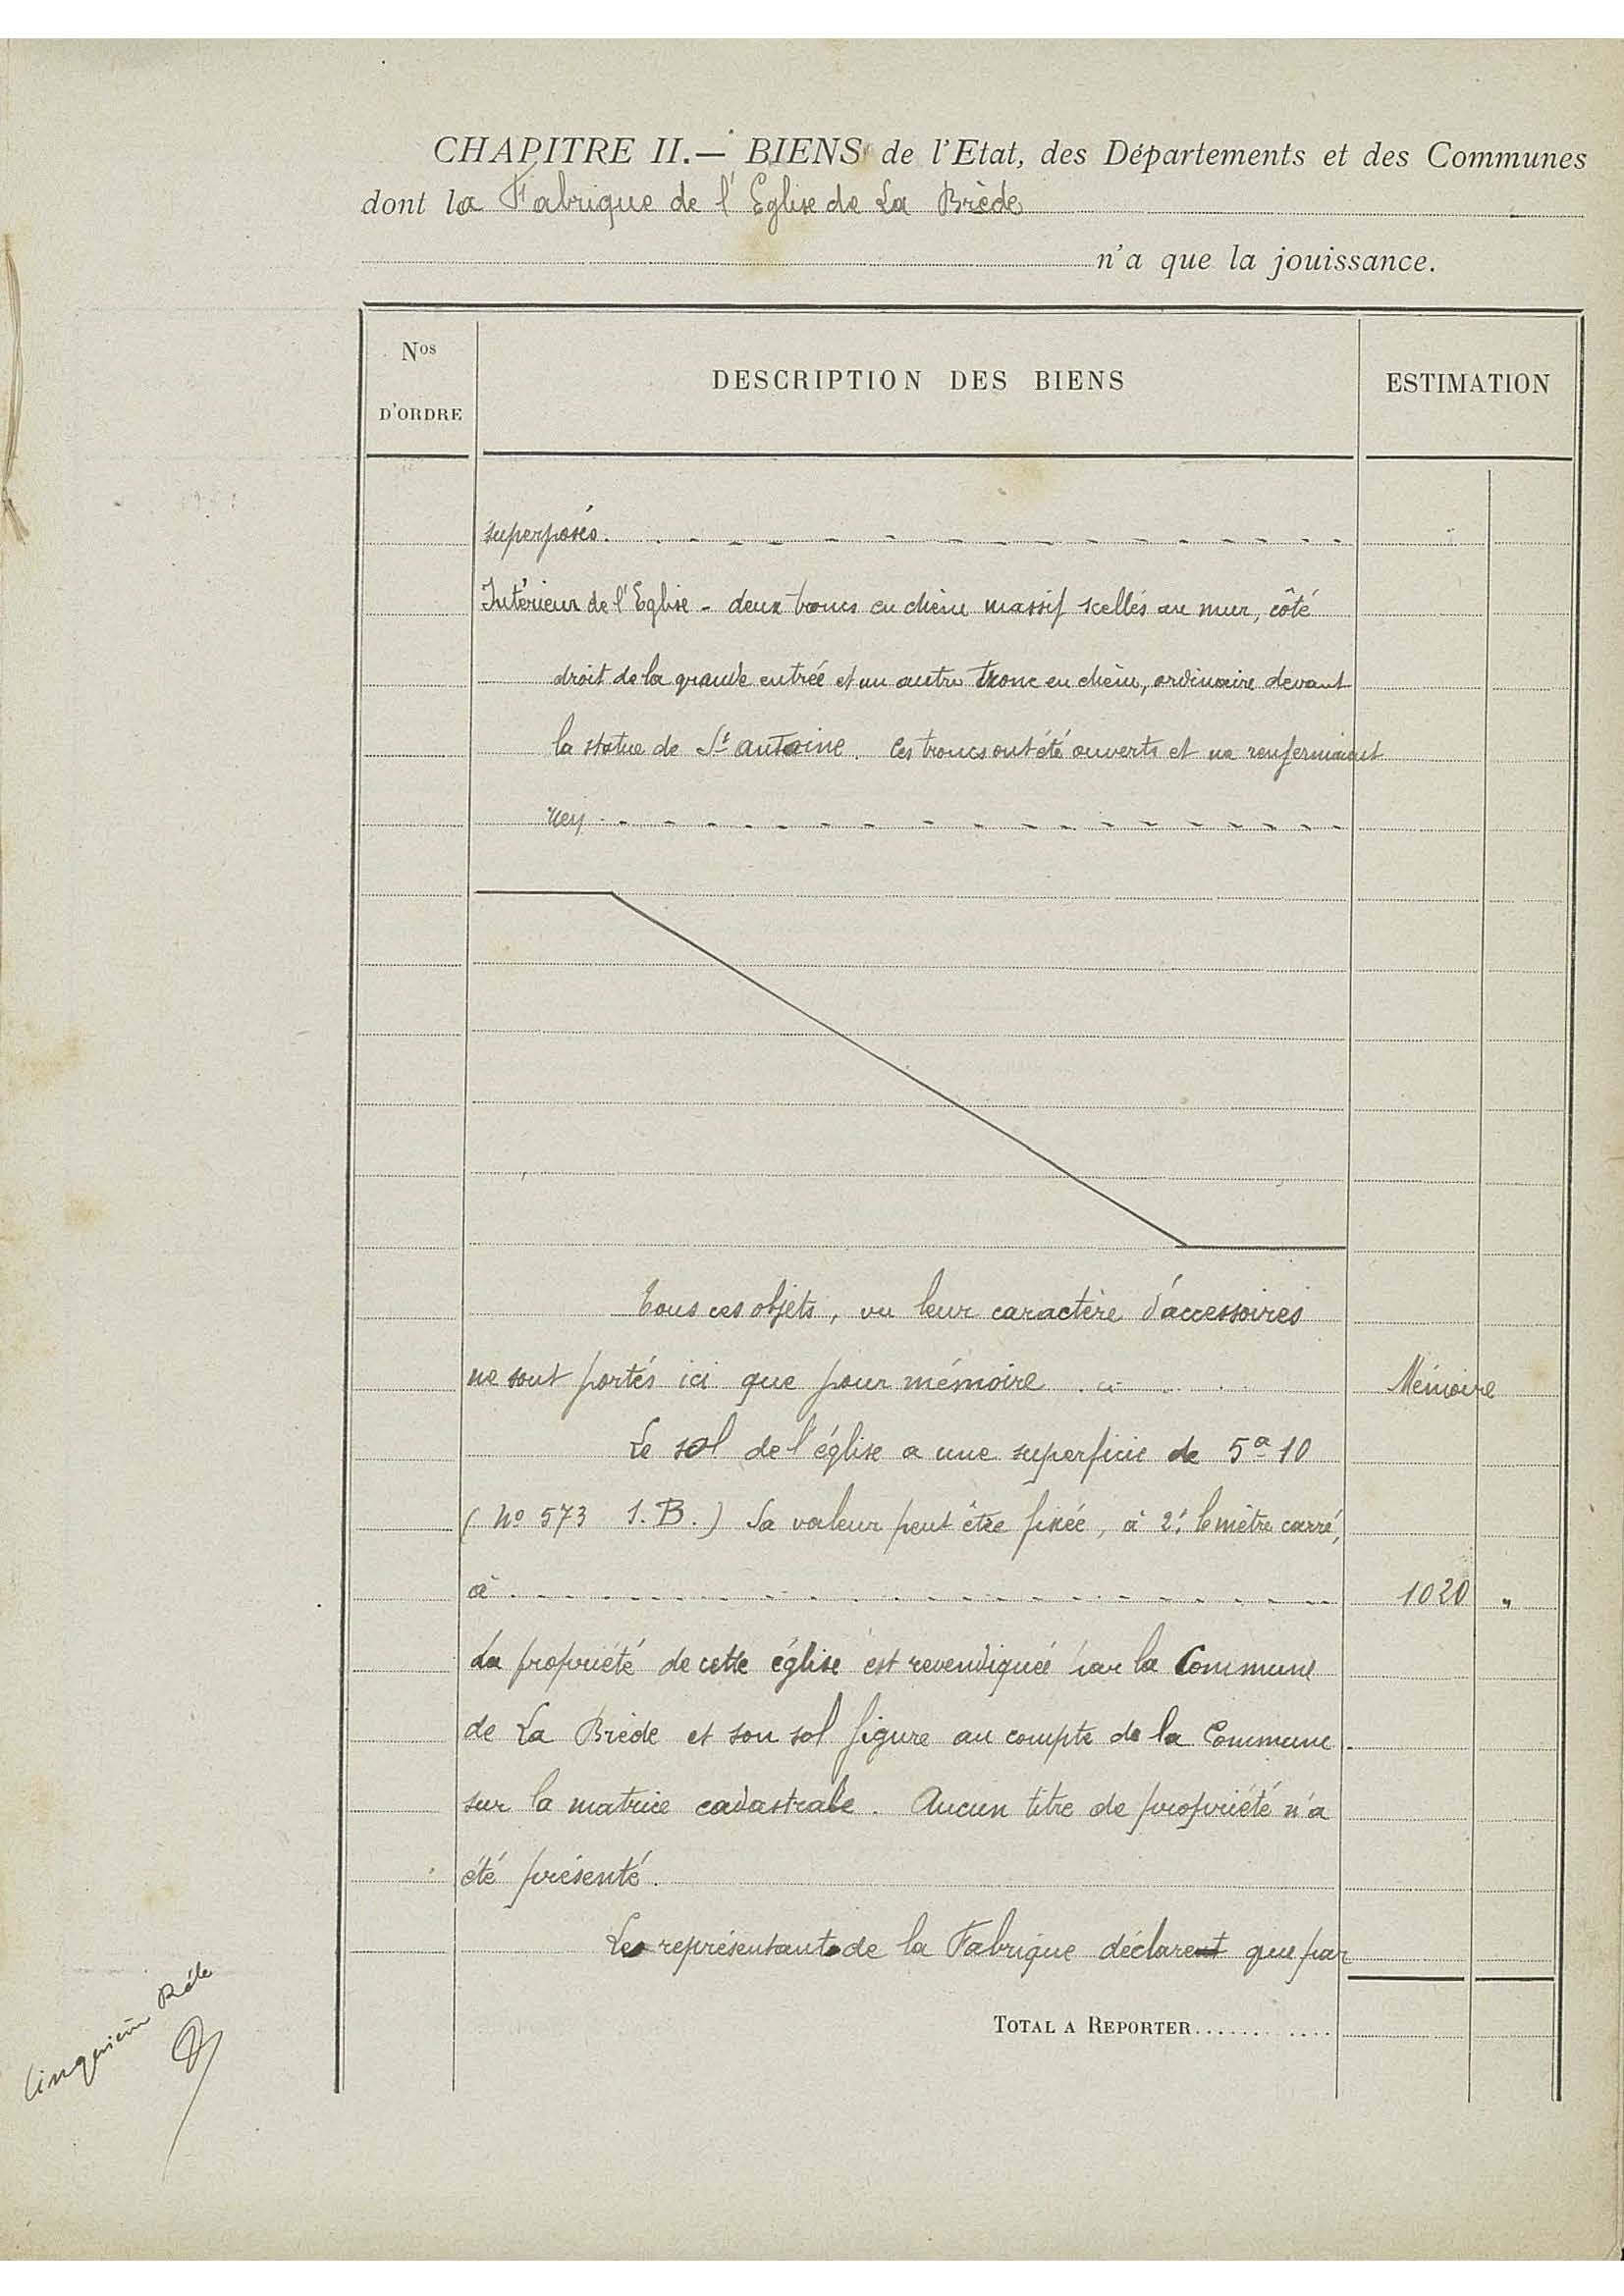 CHAPITRE II.— BIENS de l'Etat, des Départements et des Communes
dont la Fabrique de l'Eglise de La Brède
n'a que la jouissance.
Nos D'ORDRE
DESCRIPTION DES BIENS
ESTIMATION
superposés.
Intérieur de l'Eglise - deux troncs en chêne massif scellés au mur, côté
droit de la grande entrée et un autre tronc en chêne, ordinaire devant
la statue de St antoine. Ces troncs ont été ouverts et ne renfermaient
rien
Tous ces objets, vu leur caractère d'accessoires
ne sont portés ici que pour mémoire Mémoire
Le sol de l'église a une superficie de 5a 10
(No 573 S. B.) Sa valeur peut être fixée, à 2f le mètre carré,
à 1020 "
La propriété de cette église est revendiquée par la Commune
de La Brède et son sol figure au compte de la Commune
sur la matrice cadastrale. Aucun titre de propriété n'a
été présenté.
Les représentants de la Fabrique déclarent que par
TOTAL A REPORTER